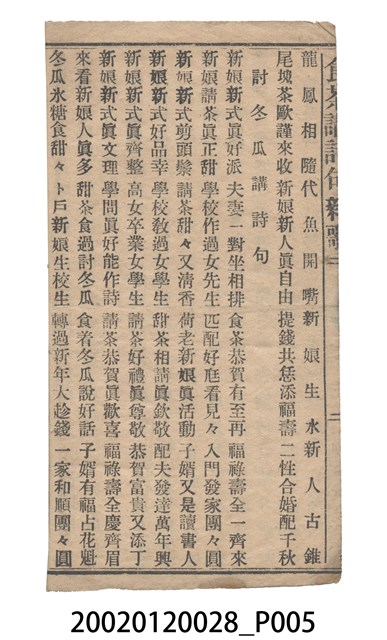 食茶講詩句新歌
二
龍鳳相隨代魚開嘴新娘生水新人古錐
尾塊茶歐謹來收新娘新人眞自由提錢共恁添福壽二性合婚配千秋
討冬瓜講詩句
新娘新式眞好派夫妻一對坐相排食茶恭賀有至再福祿壽全一齊來
新娘請茶眞正甜學校作過女先生匹配好尫看見々入門發家團々圓
新娘新式剪頭鬃請茶甜々又淸香荷老新娘眞活動子婿又是讀書人
新娘新式好品幸學校敎過女學生甜茶相請眞欽敬配夫發達萬年興
新娘新式眞齊整高女卒業女學生請茶好禮眞尊敬恭賀富貴又添丁
新娘新式眞文理學問眞好能作詩請茶恭賀眞歡喜福祿壽全慶齊眉
來看新娘人眞多甜茶食過討冬瓜食着冬瓜說好話子婿有福占花魁
冬瓜氷糖食甜々卜戶新娘生校生轉過新年大趁錢一家和順團々圓
20020120028_P005